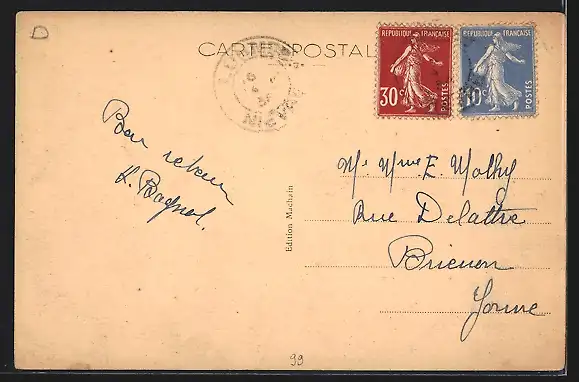 D
CARTE POSTALE
REPUBLIQUE FRANÇAISE
30c
POSTES
REPUBLIQUE FRANÇAISE
10c
POSTES
NIÈVRE
Bon retour
Mr Mme E. Mothy
Rue Delattre
Brienon
Yonne
Edition Machain
99